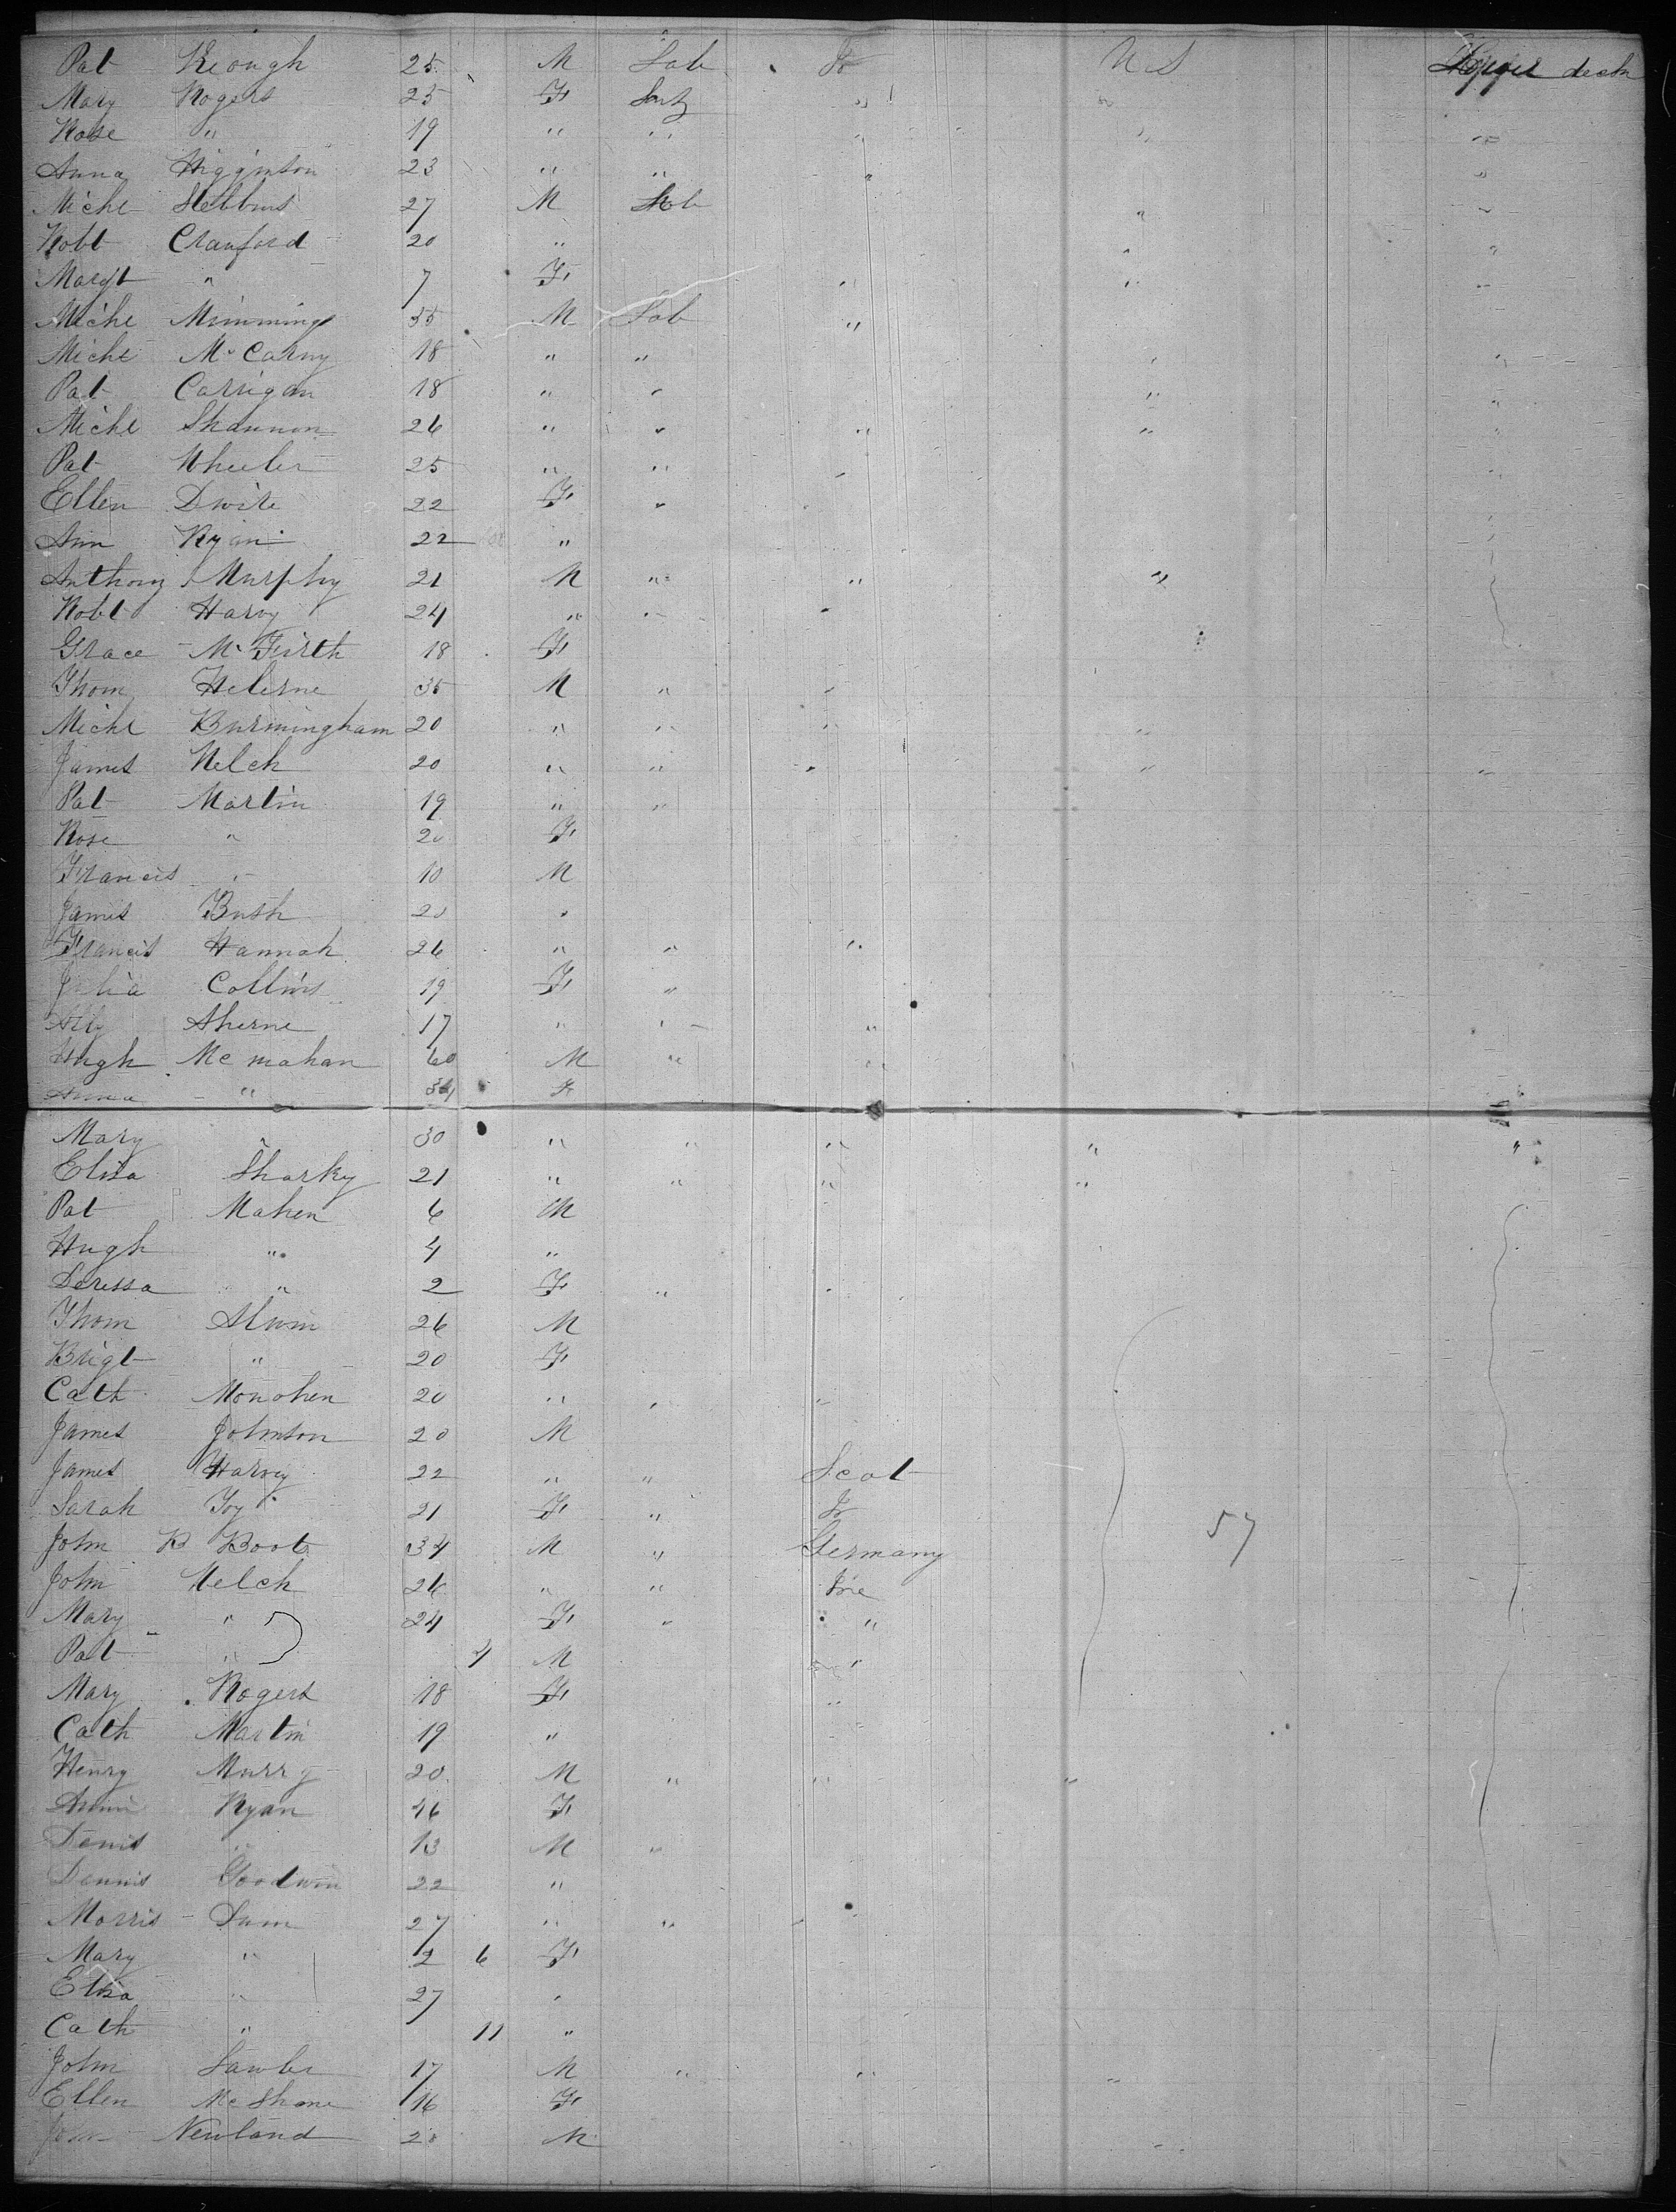 Pat Keough 25 M Lab Ir U S Upper deck
Mary Rogers 25 F " "
Rose " 19 " " " " "
Anna Higginton 23 " " " "
Michl Stebbins 27 M Lab " "
Robt Cranford 20 " " "
Margt " 7 F " " "
Michl Mimming 35 M Lab "
Michl Mc Carny 18 " " " "
Pat Carrigan 18 " " " "
Michl Shannon 26 " " " " "
Pat Wheeler 25 " " "
Ellen Dwire 22 F "
Ann Ryan 22 "
Anthony Murphy 21 M " " "
Robt Harvy 24 " " "
Grace Mc Firth 18 F
Thom Helerne 35 M " "
Michl Burmingham 20 " " " "
James Welch 20 " " " " "
Pat Martin 19 " "
Rose " 20 F
Francis " 10 M
James Bush 20 "
Francis Hannah 26 " " "
Julia Collins 19 F "
Ally Aherne 17 " " "
Hugh Mc mahan 60 M " "
Anna " 34 F
Mary " 30 " " " " "
Eliza Sharky 21 " " " "
Pat Mahen 6 M
Hugh " 4 "
Teressa " 2 F " "
Thom Alwin 26 M
Brigt " 20 F
Cath Monohen 20 " " "
James Johnston 20 M
James Harvey 22 " " Scot
Sarah Foy 21 F " Ir
John B Boote 34 M " Germany 57
John Welch 26 " " Ire
Mary " 24 F " "
Pat " 4 M "
Mary Rogers 18 F "
Cath Martin 19 "
Henry Murry 20 M " " "
Ryan 46 F
Denis " 13 M "
Dennis Goodwin 22 "
Morris 27 " " "
Mary " 2 6 F
Eliza " 27 "
Cath " 11 "
John Lawler 17 M " " "
Ellen Mc Shane 16 F
Newland 28 M "